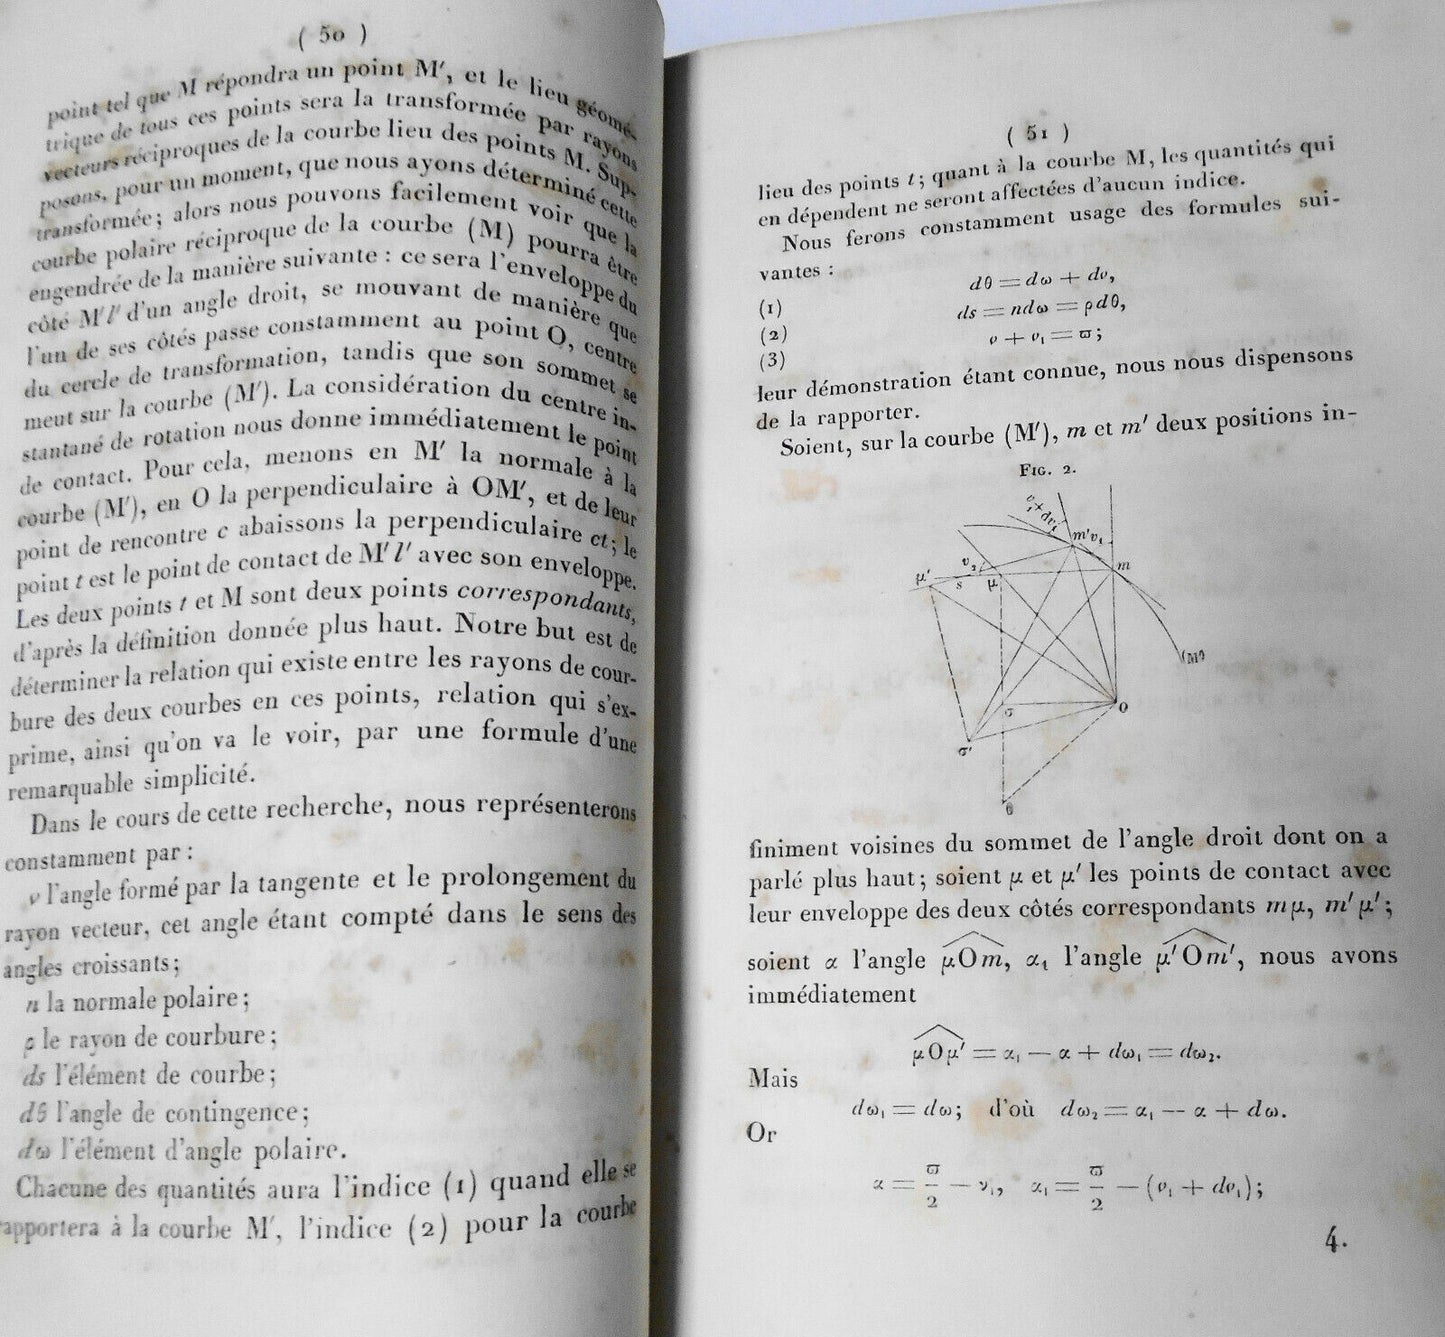 ( 50 )
point tel que M répondra un point M′, et le lieu géomé-
trique de tous ces points sera la transformée par rayons
vecteurs réciproques de la courbe lieu des points M. Sup-
posons, pour un moment, que nous ayons déterminé cette
transformée; alors nous pouvons facilement voir que la
courbe polaire réciproque de la courbe (M) pourra être
engendrée de la manière suivante : ce sera l'enveloppe du
côté M′l′ d'un angle droit, se mouvant de manière que
l'un de ses côtés passe constamment au point O, centre
du cercle de transformation, tandis que son sommet se
meut sur la courbe (M′). La considération du centre in-
stantané de rotation nous donne immédiatement le point
de contact. Pour cela, menons en M′ la normale à la
courbe (M′), en O la perpendiculaire à OM′, et de leur
point de rencontre c abaissons la perpendiculaire ct; le
point t est le point de contact de M′l′ avec son enveloppe.
Les deux points t et M sont deux points correspondants,
d'après la définition donnée plus haut. Notre but est de
déterminer la relation qui existe entre les rayons de cour-
bure des deux courbes en ces points, relation qui s'ex-
prime, ainsi qu'on va le voir, par une formule d'une
remarquable simplicité.
Dans le cours de cette recherche, nous représenterons
constamment par :
v l'angle formé par la tangente et le prolongement du
rayon vecteur, cet angle étant compté dans le sens des
angles croissants;
n la normale polaire;
ρ le rayon de courbure;
ds l'élément de courbe;
dθ l'angle de contingence;
dω l'élément d'angle polaire.
Chacune des quantités aura l'indice (1) quand elle se
rapportera à la courbe M′, l'indice (2) pour la courbe
( 51 )
lieu des points t; quant à la courbe M, les quantités qui
en dépendent ne seront affectées d'aucun indice.
Nous ferons constamment usage des formules sui-
vantes :
(1) dθ = dω + dv,
(2) ds = ndω = ρdθ,
(3) v + v₁ = ϖ;
leur démonstration étant connue, nous nous dispensons
de la rapporter.
Soient, sur la courbe (M′), m et m′ deux positions in-
FIG. 2.
v₁+dv₁
m′ v₁
v₂
m
μ′
s
μ
(M′)
σ
O
σ′
θ
finiment voisines du sommet de l'angle droit dont on a
parlé plus haut; soient μ et μ′ les points de contact avec
leur enveloppe des deux côtés correspondants mμ, m′μ′;
soient α l'angle μOm, α₁ l'angle μ′Om′, nous avons
immédiatement
μOμ′ = α₁ − α + dω₁ = dω₂.
Mais
dω₁ = dω; d'où dω₂ = α₁ − α + dω.
Or
α = ϖ/2 − v₁, α₁ = ϖ/2 − (v₁ + dv₁);
4.